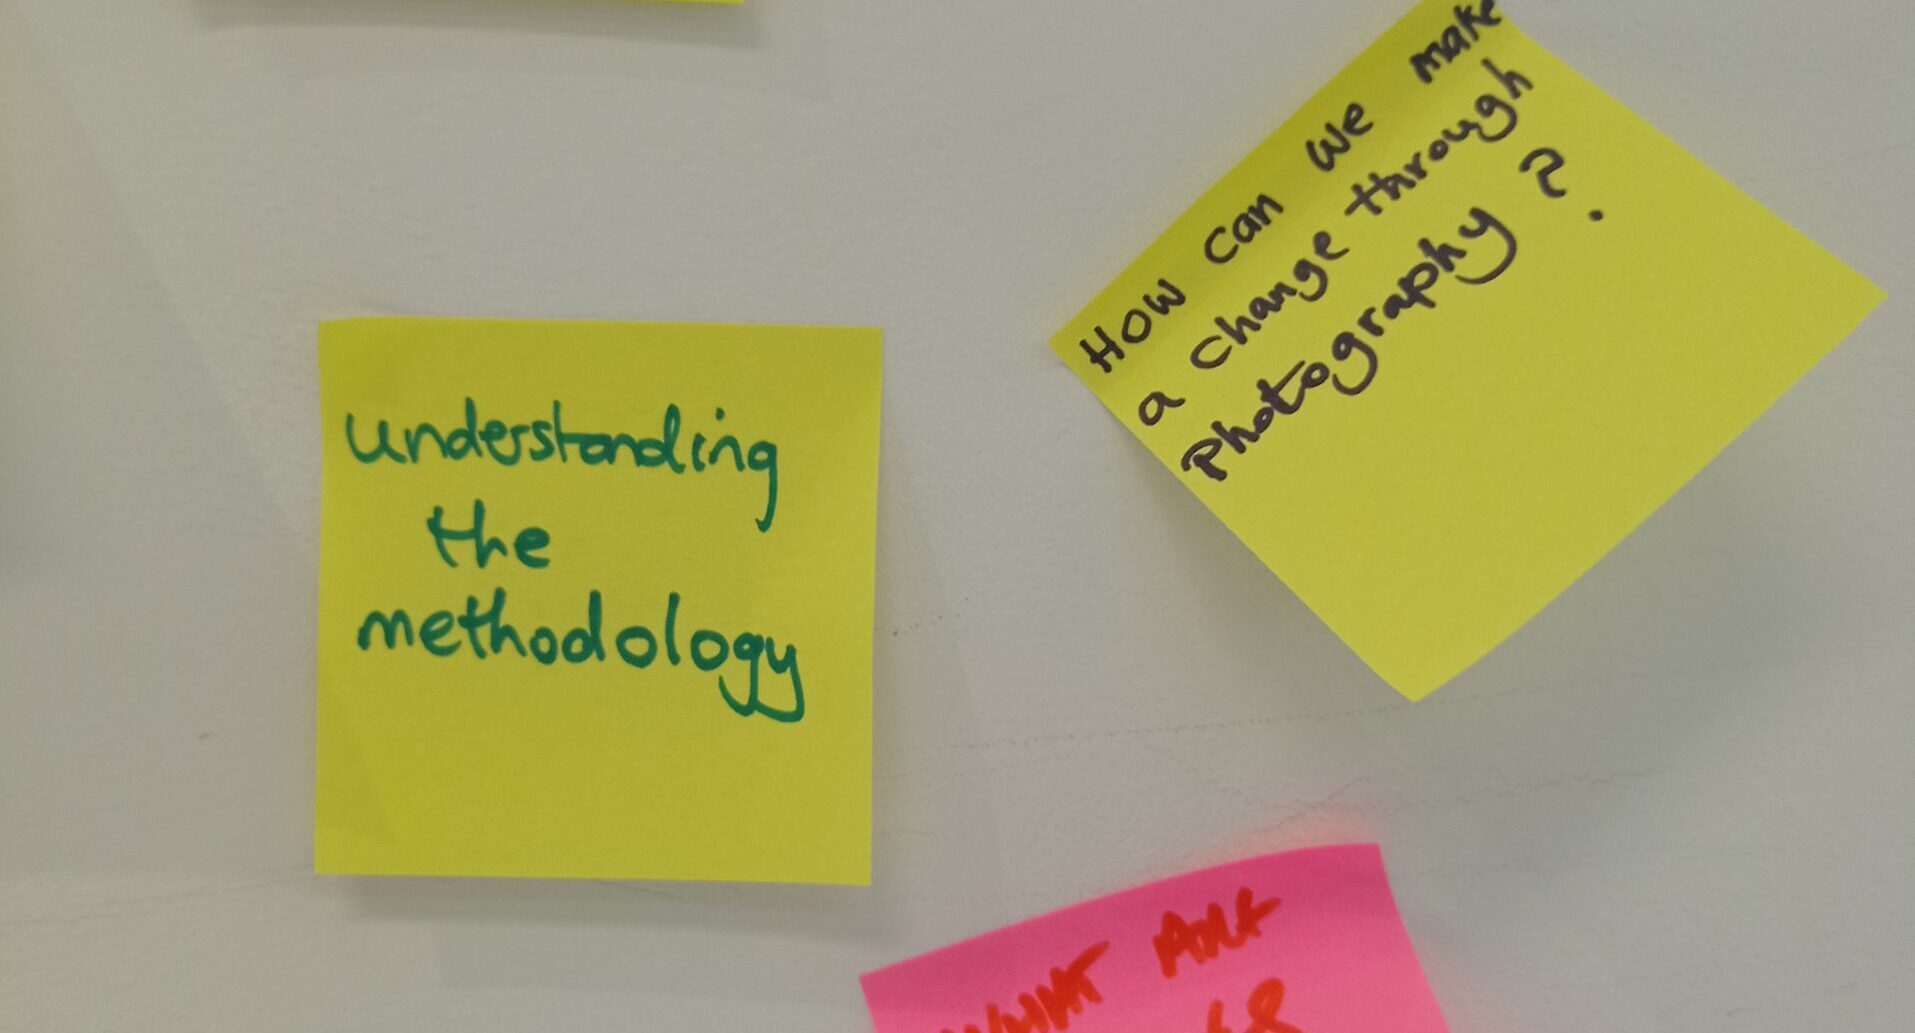 understanding
the
methodology
How can we make
a change through
photography?
WHAT ARE